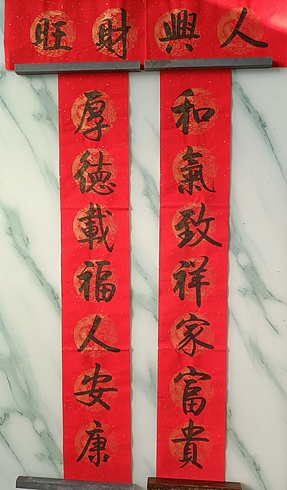 人興財旺
和氣致祥家富貴
厚德載福人安康